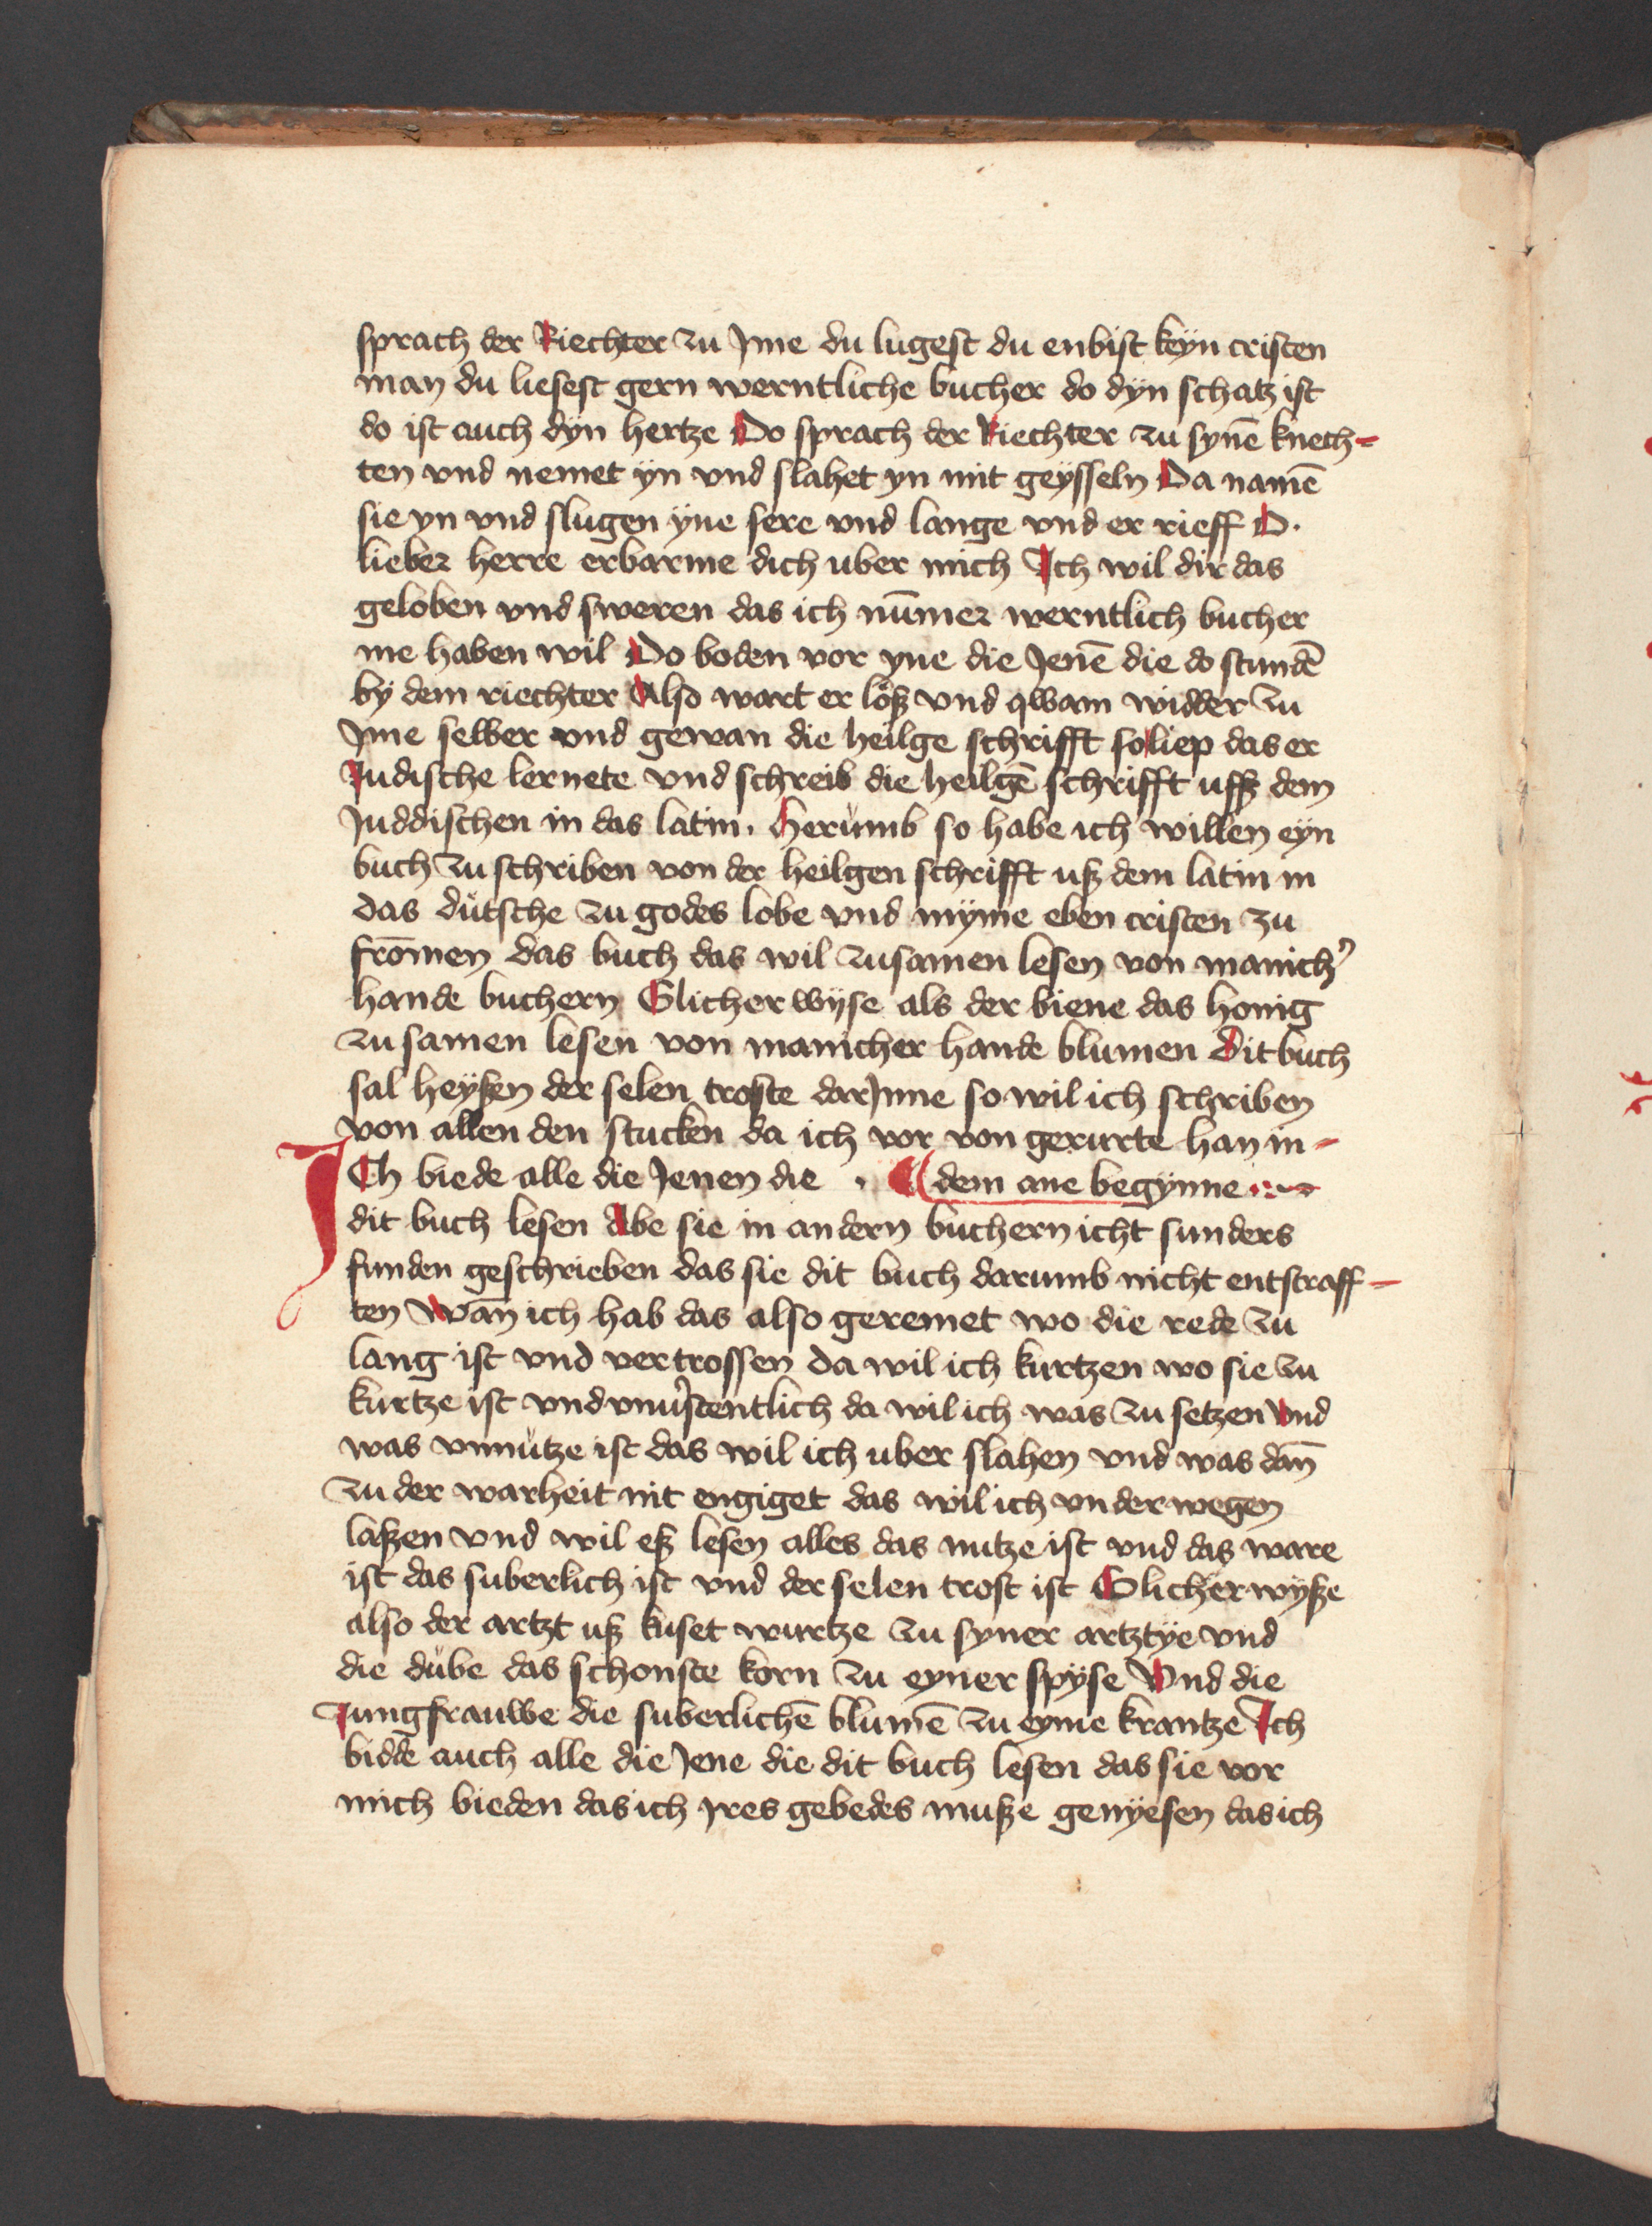 sprach der Riechter zu Jme du lugest du enbist keyn cristen
man du liesest gern werntliche bucher do dyn schatz ist
do ist auch dyn hertze Do sprach der Riechter zu synē knech-
ten vnd nemet yn vnd slahet yn mit geysseln Da namē
sie yn vnd slugen yne sere vnd lange vnd er rieff O.
lieber herre erbarme dich uber mich Ich wil dir das
geloben vnd sweren das ich nūmer werntlich bucher
me haben wil Do boden vor yne die Jenē die do stundē
by dem riechter Also wart er löß vnd qwam widder zu
Jme selber vnd gewan die heilge schrifft so liep das er
Judische lernete vnd schreib die heilgē schrifft ußß dem
Juddischen in das latin. Herumb so habe ich willen eyn
buch zu schriben von der heilgen schrifft uß dem latin in
das dutsche zu godes lobe vnd myme eben cristen zu
frōmen das buch das wil zusamen lesen von manich᾽
hande buchern Glicher wyse als der biene das honig
zu samen lesen von manicher hande blumen Dit buch
sal heyßen der selen troste darJnne so wil ich schriben
von allen den stucken da ich vor von gerurte han in-
Ich biede alle die Jenen die . dem ane begynne
dit buch lesen Abe sie in andern buchern icht sunders
funden geschrieben das sie dit buch darumb nicht entstraff-
ten Wān ich hab das also geremet wo die rede zu
lang ist vnd vertrossen da wil ich kurtzen wo sie zu
kurtze ist vnd vnu᾽stentlich da wil ich was zu setzen Vnd
was vnnutze ist das wil ich uber slahen vnd was dan̄
zu der warheit nit engiget das wil ich vnderwegen
laßen vnd wil eß lesen alles das nutze ist vnd das ware
ist das suberlich ist vnd der selen trost ist Glicher wyße
also der artzt uß kuset wurtze zu syner artztye vnd
die dube das schonste korn zu eyner spyse Vnd die
Jungfrauwe die suberlichē blumē zu eyme krantze Ich
bidde auch alle die Jene die dit buch lesen das sie vor
mich bieden das ich Jres gebedes muße genyesen das ich